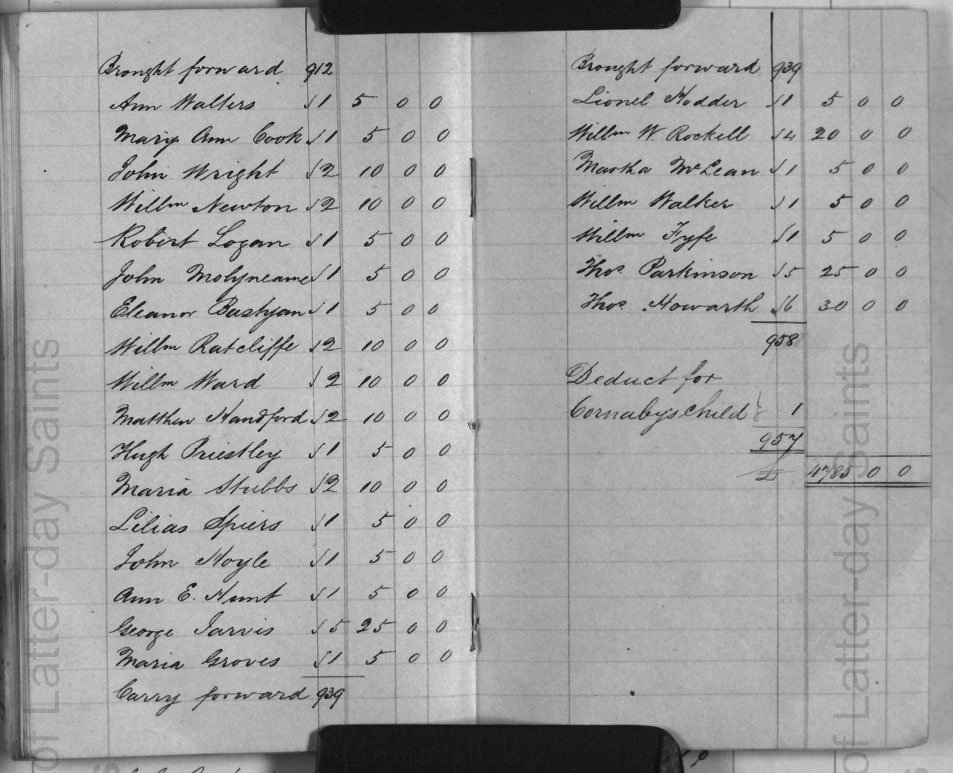 Brought forward 912
Ann Walters √1 5 0 0
Mary Ann Cook √1 5 0 0
John Wright √2 10 0 0
Willm Newton √2 10 0 0
Robert Logan √1 5 0 0
John Molyneame √1 5 0 0
Eleanor Bastyan √1 5 0 0
Willm Ratcliffe √2 10 0 0
Willm Ward √2 10 0 0
Matthew Handford √2 10 0 0
Hugh Priestley √1 5 0 0
Maria Stubbs √2 10 0 0
Lilias Spiers √1 5 0 0
John Hoyle √1 5 0 0
Ann E. Hunt √1 5 0 0
George Jarvis √5 25 0 0
Maria Groves √1 5 0 0
Carry forward 939
Brought forward 939
Lionel Hodder √1 5 0 0
Willm W. Rockell √4 20 0 0
Martha McLean √1 5 0 0
Willm Walker √1 5 0 0
Willm Fyfe √1 5 0 0
Thos. Parkinson √5 25 0 0
Thos. Howarth √6 30 0 0
958
Deduct for
Cornaby's child 1
957
£ 4785 0 0
of Latter-day Saints
of Latter-day Saints